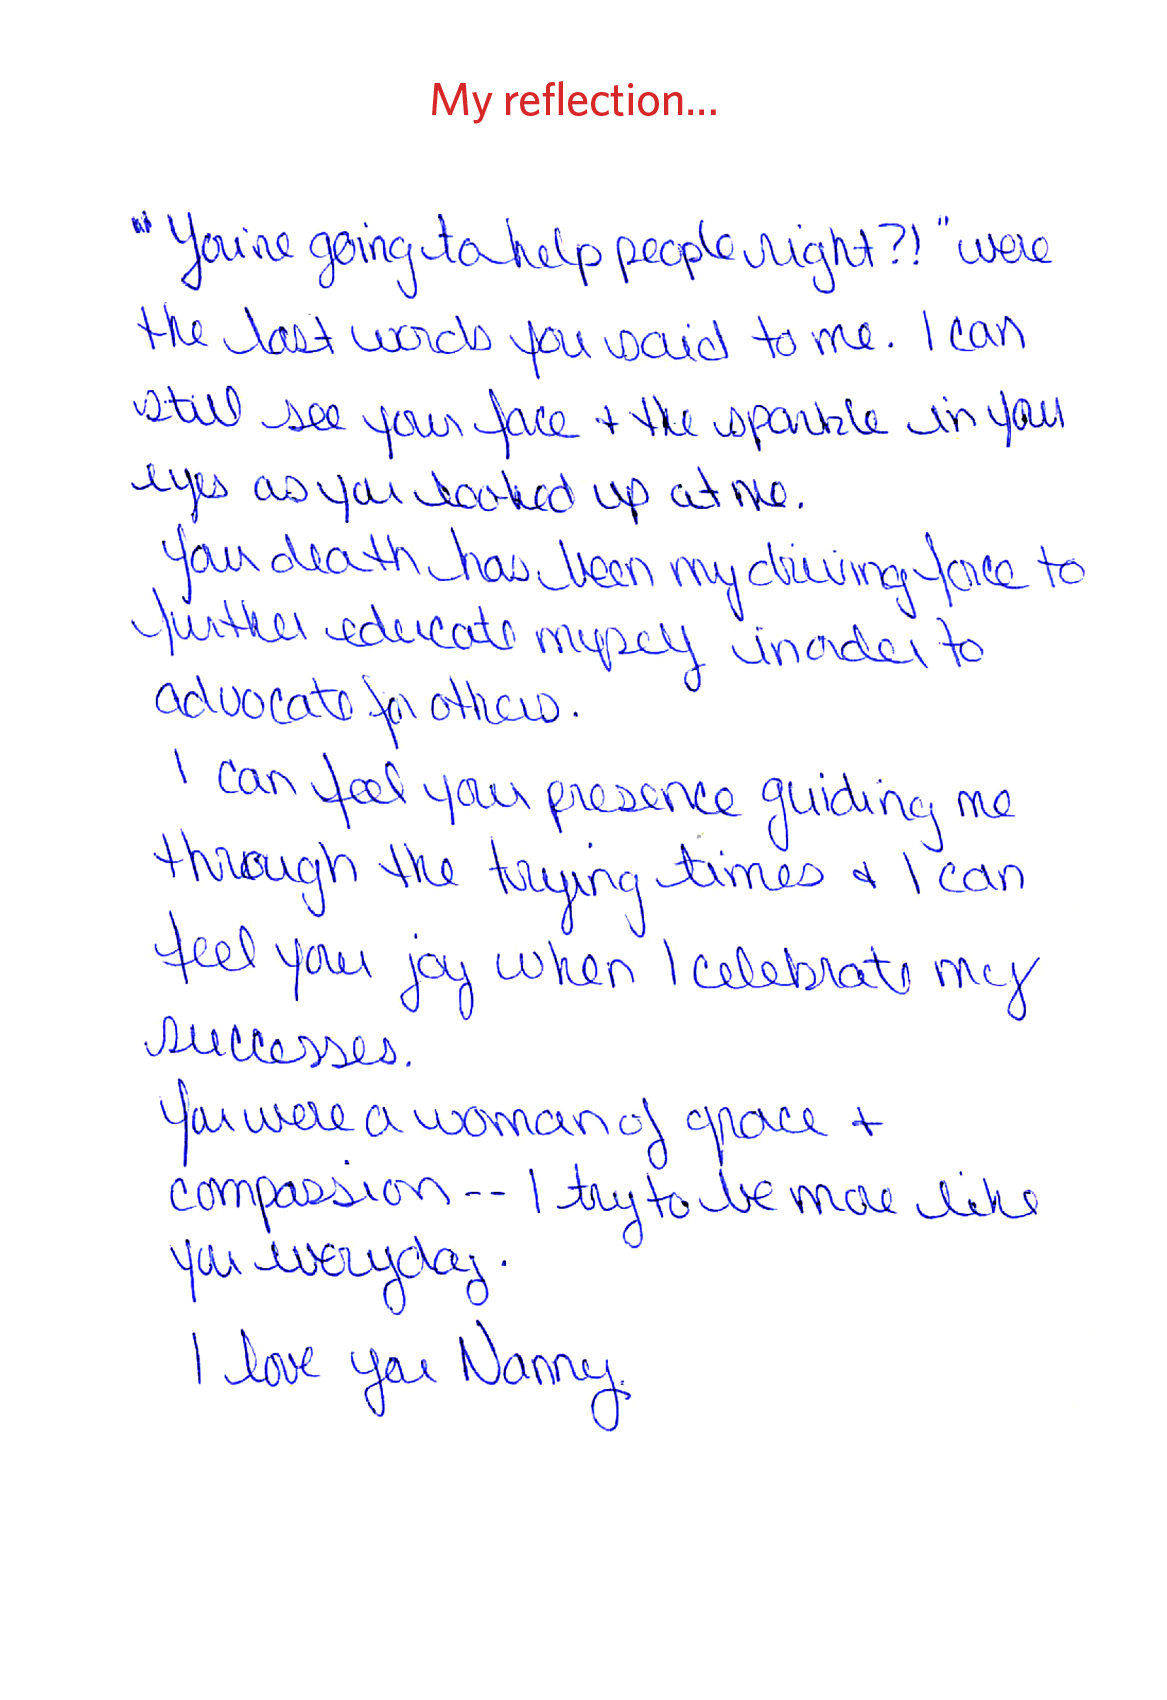 My reflection...
"You're going to help people right?!" were
the last words you said to me. I can
still see your face + the sparkle in your
eyes as you looked up at me.
Your death has been my driving force to
further educate myself in order to
advocate for others.
I can feel your presence guiding me
through the trying times & I can
feel your joy when I celebrate my
successes.
You were a woman of grace +
compassion -- I try to be more like
you everyday.
I love you Nanny.